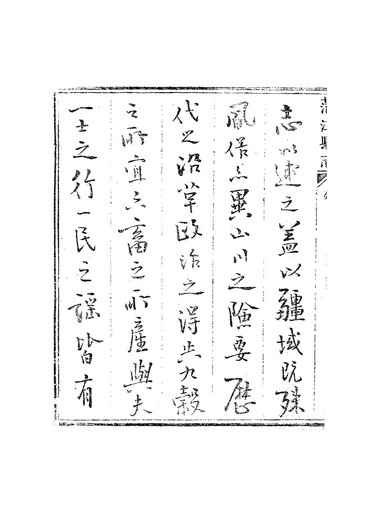 志以述之蓋以疆域既殊
風俗亦異山川之險要歷
代之沿革政治之得失九穀
之所宜六畜之所產與夫
一士之行一民之謠皆有